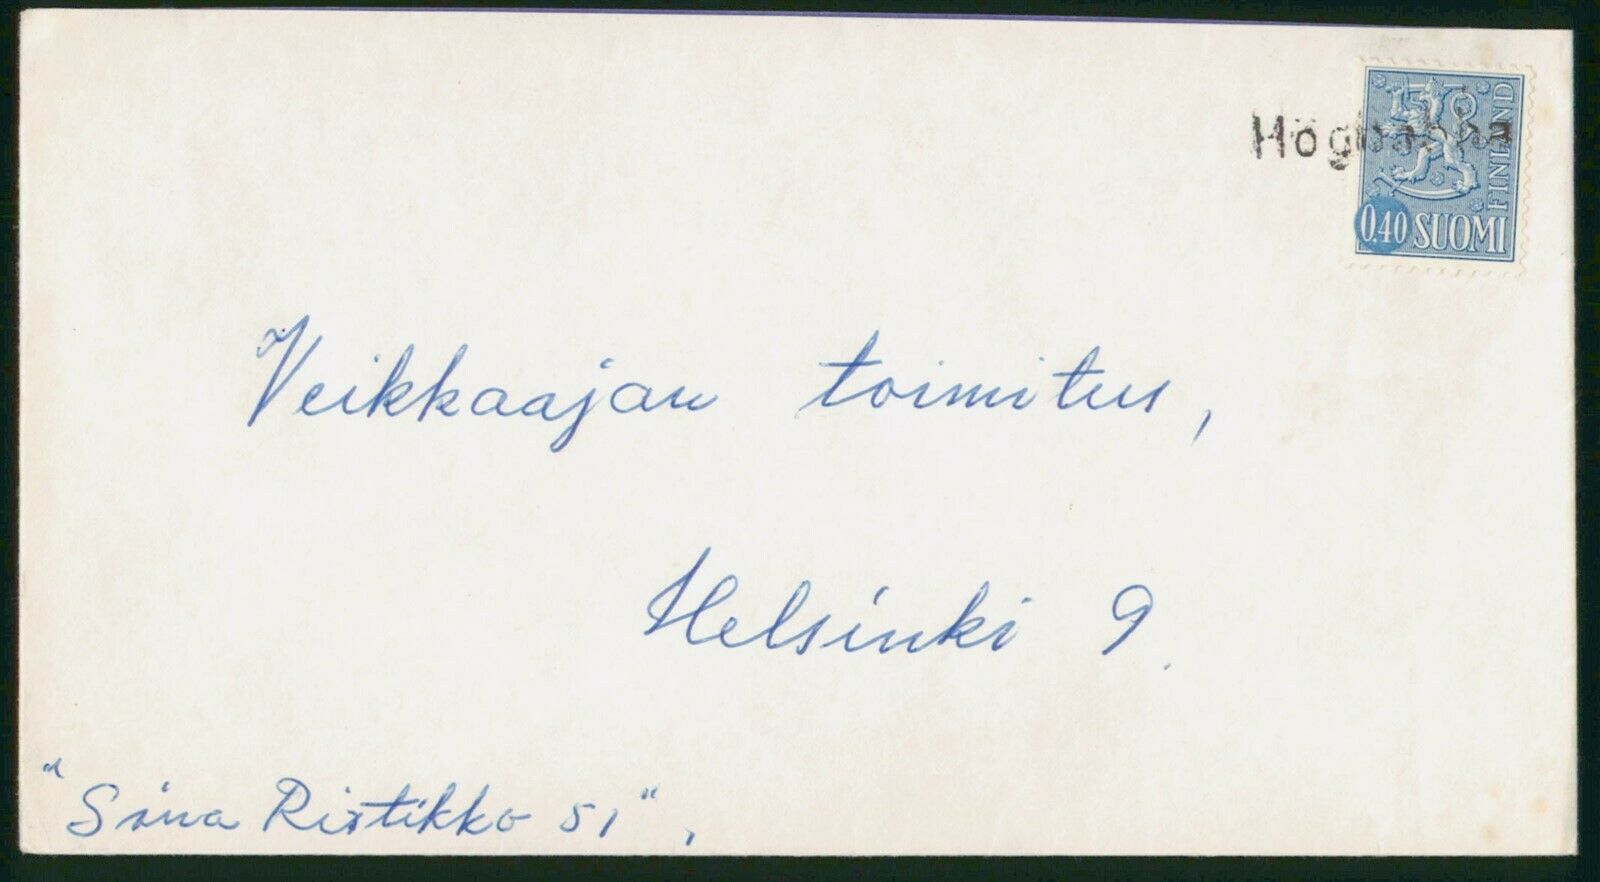 FINLAND
0,40 SUOMI
Veikkaajan toimitus,
Helsinki 9.
"Sana Ristikko 51",